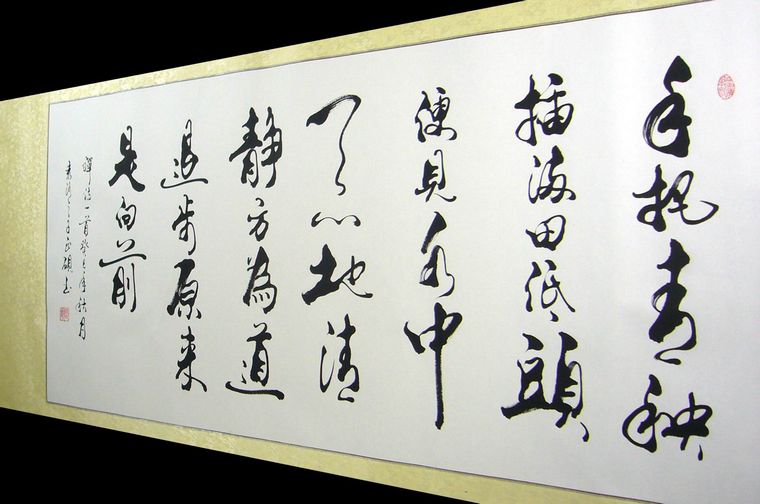 手把青秧
插满田低頭
便見水中
天心地清
静方為道
退步原来
是向前
禪诗一首癸巳年秋月